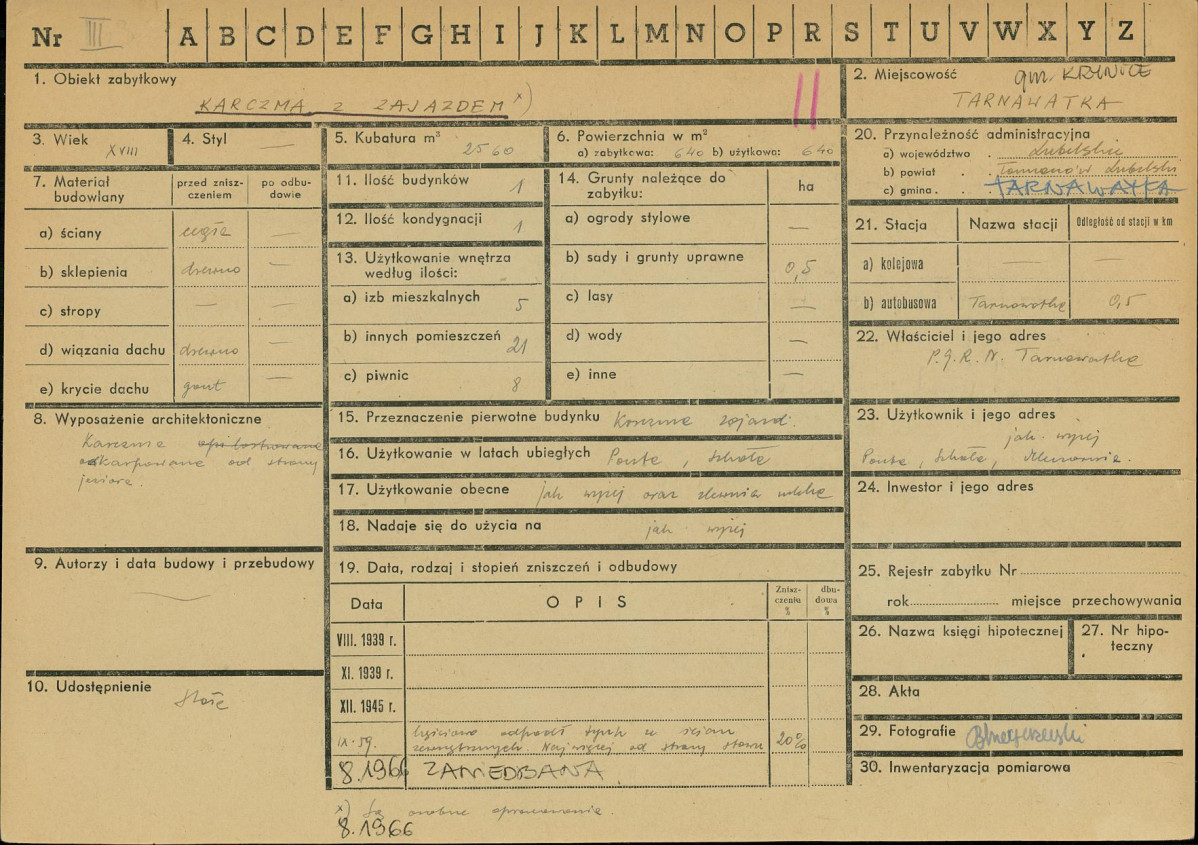 Nr III A B C D E F G H I J K L M N O P R S T U V W X Y Z
1. Obiekt zabytkowy
KARCZMA z ZAJAZDEM x)
II
2. Miejscowość gm. KRYNICE
TARNAWATKA
3. Wiek XVIII
4. Styl —
5. Kubatura m³ 2560
6. Powierzchnia w m²
a) zabytkowa: 640 b) użytkowa: 640
20. Przynależność administracyjna
a) województwo . Lubelskie
b) powiat . . Tomaszów Lubelski
c) gmina . . TARNAWATKA
7. Materiał budowlany
przed znisz-czeniem
po odbu-dowie
a) ściany cegła —
b) sklepienia drewno —
c) stropy — —
d) wiązania dachu drewno —
e) krycie dachu gont —
11. Ilość budynków 1
12. Ilość kondygnacji 1
13. Użytkowanie wnętrza
według ilości:
a) izb mieszkalnych 5
b) innych pomieszczeń 21
c) piwnic 8
14. Grunty należące do
zabytku: ha
a) ogrody stylowe —
b) sady i grunty uprawne 0,5
c) lasy —
d) wody —
e) inne —
21. Stacja Nazwa stacji Odległość od stacji w km
a) kolejowa — —
b) autobusowa Tarnawatka 0,5
22. Właściciel i jego adres
P.G.R.N. Tarnawatka
8. Wyposażenie architektoniczne
Karczma
oskarpowana od strony
jeziora.
15. Przeznaczenie pierwotne budynku Karczma zajazd.
16. Użytkowanie w latach ubiegłych Poczta, szkoła
17. Użytkowanie obecne jak wyżej oraz zlewnia mleka
18. Nadaje się do użycia na jak wyżej
23. Użytkownik i jego adres
jak wyżej
Poczta, szkoła, zlewnia.
24. Inwestor i jego adres
9. Autorzy i data budowy i przebudowy
19. Data, rodzaj i stopień zniszczeń i odbudowy
Data OPIS Znisz-czenia % dbu-dowa %
VIII. 1939 r.
XI. 1939 r.
XII. 1945 r.
IX-59. Częściowo odpadł tynk w ścian
zewnętrznych. Najwięcej od strony stawu 20%
8.1966 ZANIEDBANA
25. Rejestr zabytku Nr
rok miejsce przechowywania
26. Nazwa księgi hipotecznej
27. Nr hipo-
teczny
10. Udostępnienie stałe
28. Akta
29. Fotografie
30. Inwentaryzacja pomiarowa
x) Są osobne opracowania.
8.1966